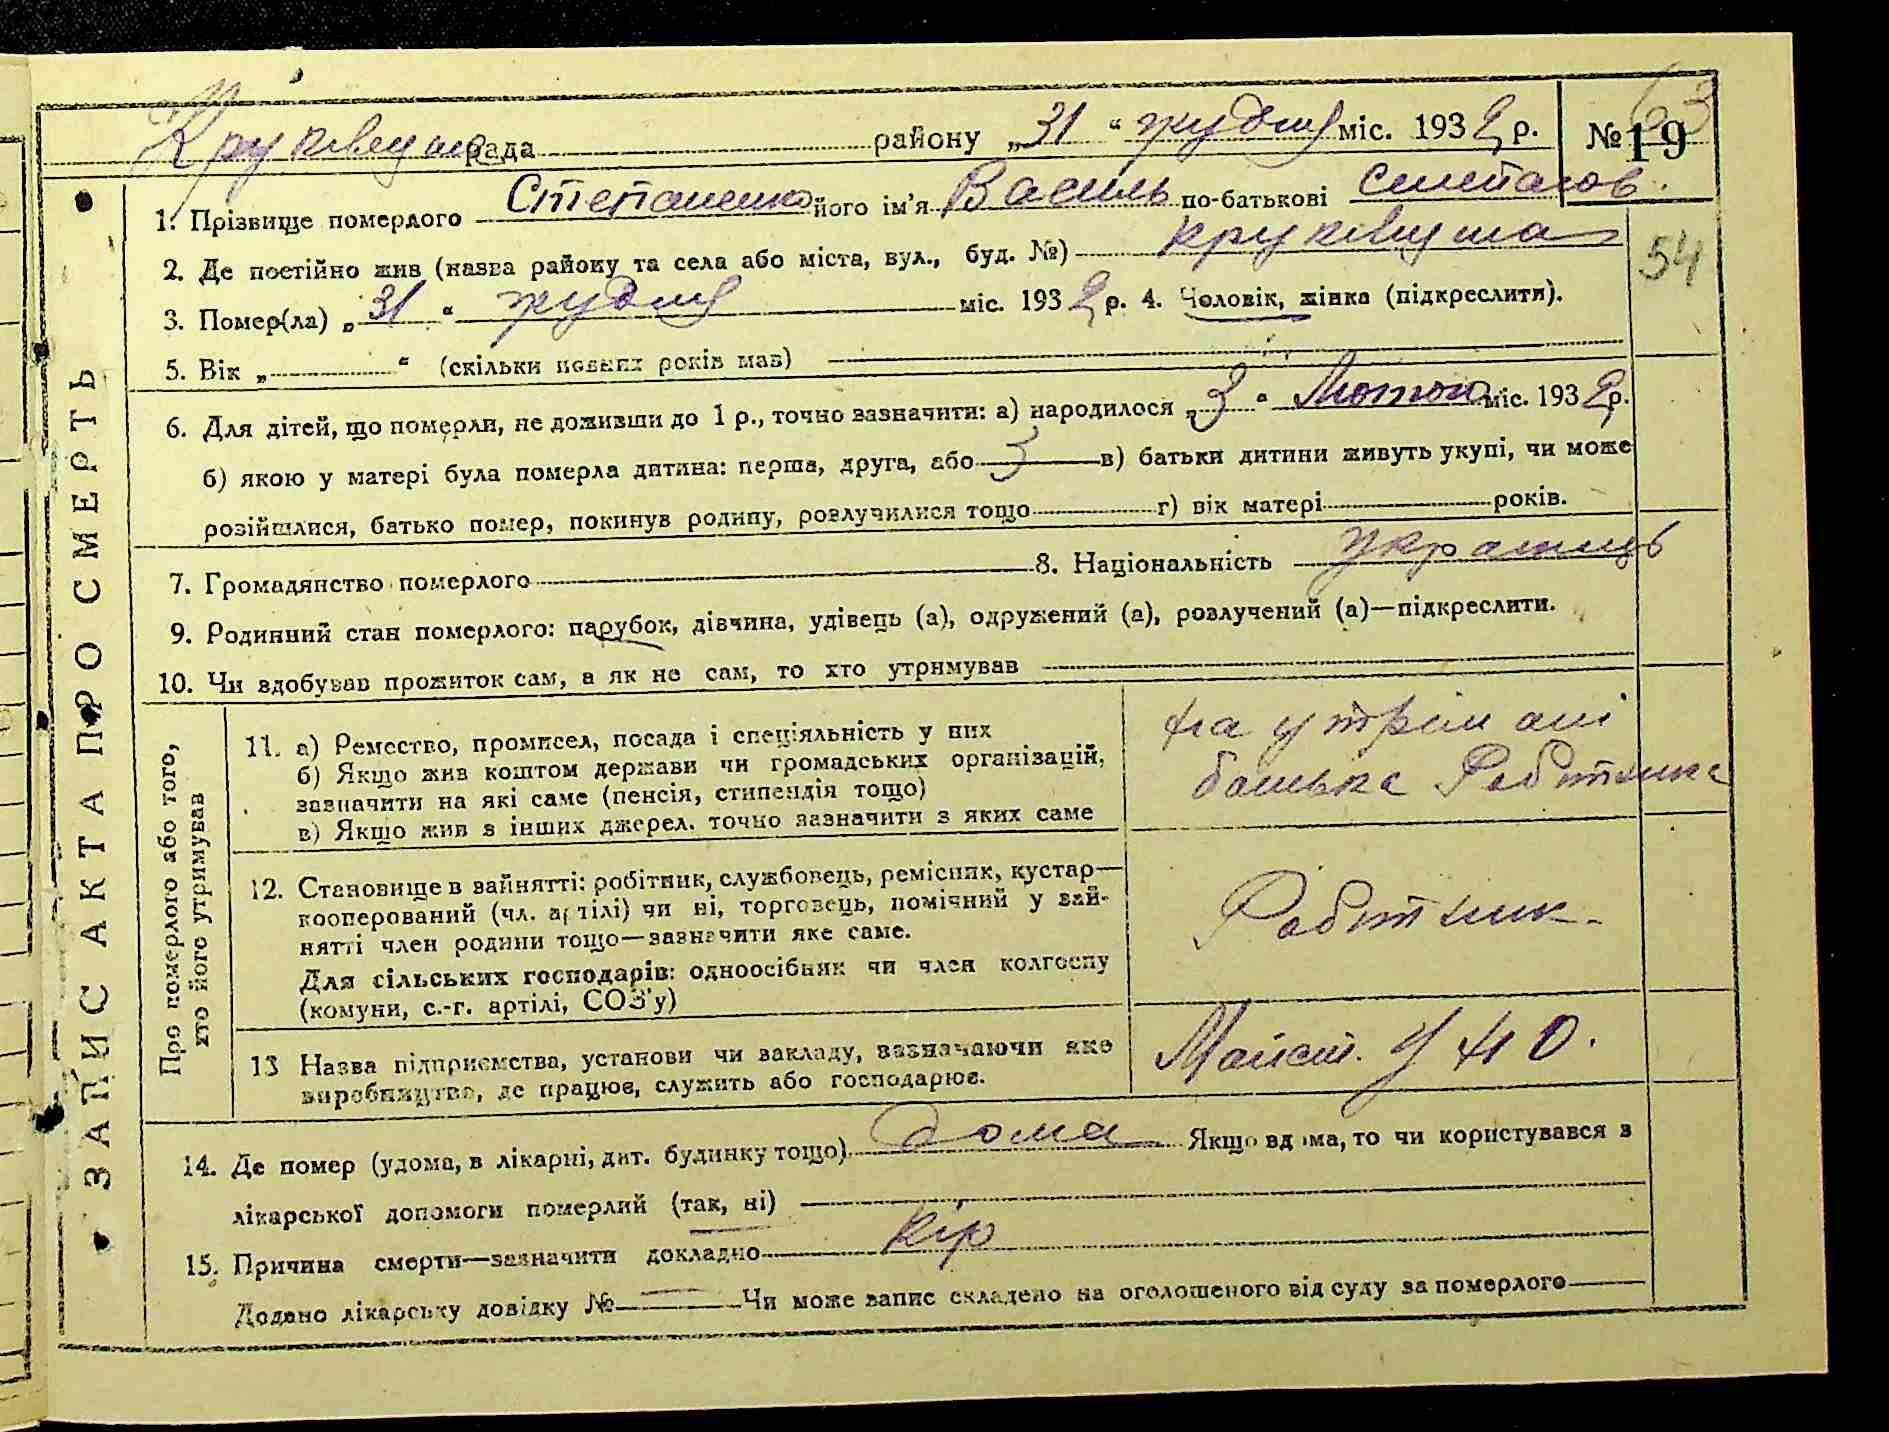 63
рада району „31“ грудня міс. 1932 р. № 19
1. Прізвище померлого Степаненко його ім'я Василь по-батькові
2. Де постійно жив (назва району та села або міста, вул., буд. №)
54
3. Помер(ла) „31“ грудня міс. 1932 р. 4. Чоловік, жінка (підкреслити).
5. Вік „ “ (скільки повних років мав)
6. Для дітей, що померли, не доживши до 1 р., точно зазначити: а) народилося „3“ Лютого міс. 1932 р.
б) якою у матері була померла дитина: перша, друга, або 3 в) батьки дитини живуть укупі, чи може
розійшлися, батько помер, покинув родину, розлучилися тощо г) вік матері років.
7. Громадянство померлого 8. Національність українець
9. Родинний стан померлого: парубок, дівчина, удівець (а), одружений (а), розлучений (а)—підкреслити.
10. Чи здобував прожиток сам, а як не сам, то хто утримував
ЗАПИС АКТА ПРО СМЕРТЬ
Про померлого або того,
хто його утримував
11. а) Ремество, промисел, посада і спеціяльність у них
б) Якщо жив коштом держави чи громадських організацій,
зазначити на які саме (пенсія, стипендія тощо)
в) Якщо жив з інших джерел. точно зазначити з яких саме
на утриманi
батька Робітника
12. Становище в зайнятті: робітник, службовець, ремісник, кустар—
кооперований (чл. артілі) чи ні, торговець, помічний у зай-
нятті член родини тощо—зазначити яке саме.
Для сільських господарів: одноосібник чи член колгоспу
(комуни, с.-г. артілі, СОЗ'у)
Робітник.
13 Назва підприємства, установи чи закладу, зазначаючи яке
виробництво, де працює, служить або господарює.
14. Де помер (удома, в лікарні, дит. будинку тощо) дома Якщо вдома, то чи користувався з
лікарської допомоги померлий (так, ні)
15. Причина смерти—зазначити докладно кір
Додано лікарську довідку № Чи може запис складено на оголошеного від суду за померлого